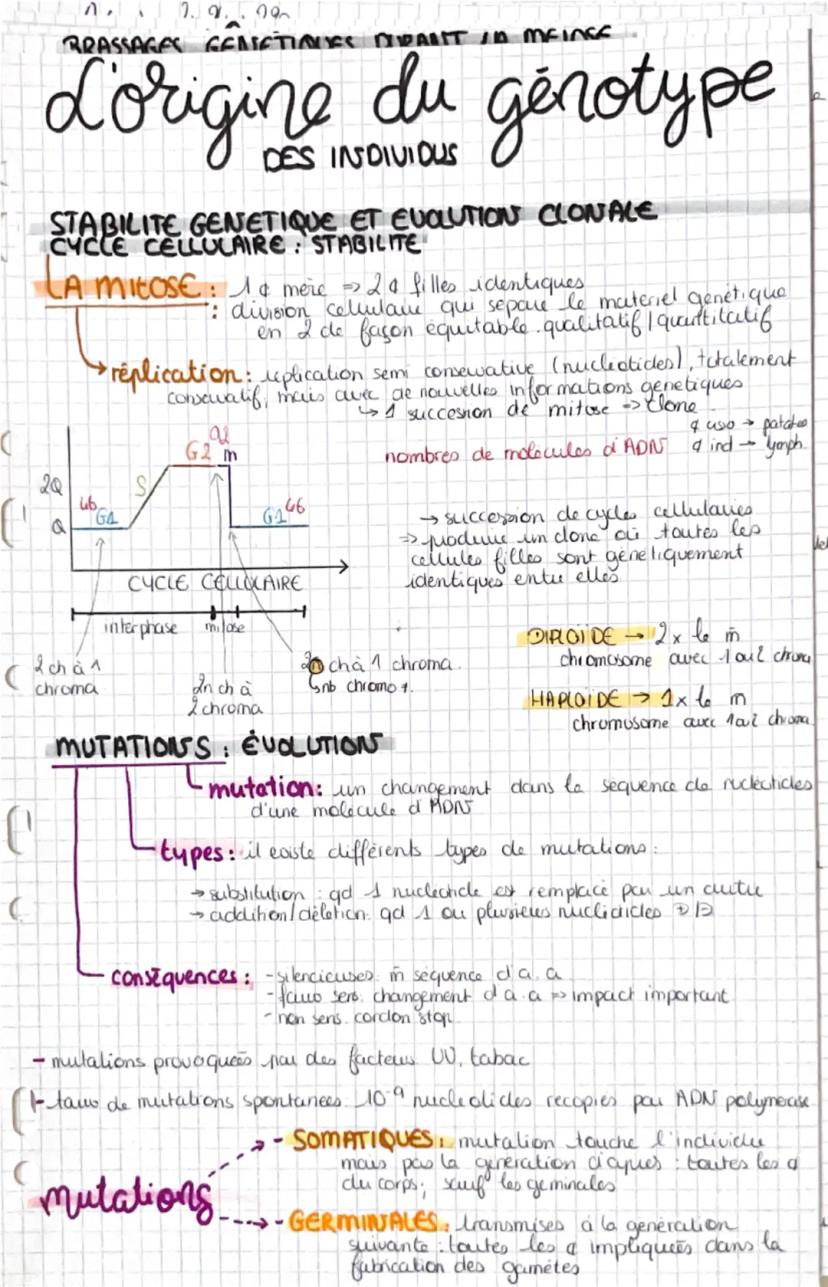 BRASSAGES GÉNÉTIQUES DURANT LA MEIOSE
L'origine du génotype
DES INDIVIDUS
STABILITE GENETIQUE ET EVOLUTION CLONALE
CYCLE CELLULAIRE : STABILITE
LA MITOSE : 1 ¢ mère => 2 ¢ filles identiques
: division cellulaire qui sépare le matériel génétique
en 2 de façon équitable. qualitatif / quantitatif
réplication : réplication semi conservative (nucléotides), totalement
conservatif, mais avec de nouvelles informations génétiques
↳ 1 succession de mitose => clone
¢ asso → patates
nombres de molécules d'ADN ¢ ind → lymph.
92
G2 m
S
2Q
46 G1
Q
G1 46
→ succession de cycles cellulaires
=> produire un clone où toutes les
cellules filles sont génétiquement
identiques entre elles
CYCLE CELLULAIRE
interphase mitose
2 ch à 1
chroma
2n ch à
2 chroma
2n ch à 1 chroma.
↳ nb chromo
DIPLOÏDE → 2 x le m̄
chromosome avec 1 ou 2 chroma
HAPLOÏDE → 1 x le m
chromosome avec 1 ou 2 chroma
MUTATIONS : ÉVOLUTION
mutation : un changement dans la séquence de nucléotides
d'une molécule d'ADN
types : il existe différents types de mutations :
→ substitution : qd 1 nucléotide est remplacé par un autre
→ addition/délétion : qd 1 ou plusieurs nuclidicles
conséquences : - silencieuses : m̄ séquence d'a.a
- faux sens : changement d'a.a => impact important
- non sens : cordon stop
- mutations provoquées par des facteurs UV, tabac
- taux de mutations spontanées 10⁻⁹ nucléotides recopiés par ADN polymérase
mutations
- SOMATIQUES : mutation touche l'individu
mais pas la génération d'après : toutes les ¢
du corps, sauf les germinales
- GERMINALES : transmises à la génération
suivante : toutes les ¢ impliquées dans la
fabrication des gamètes